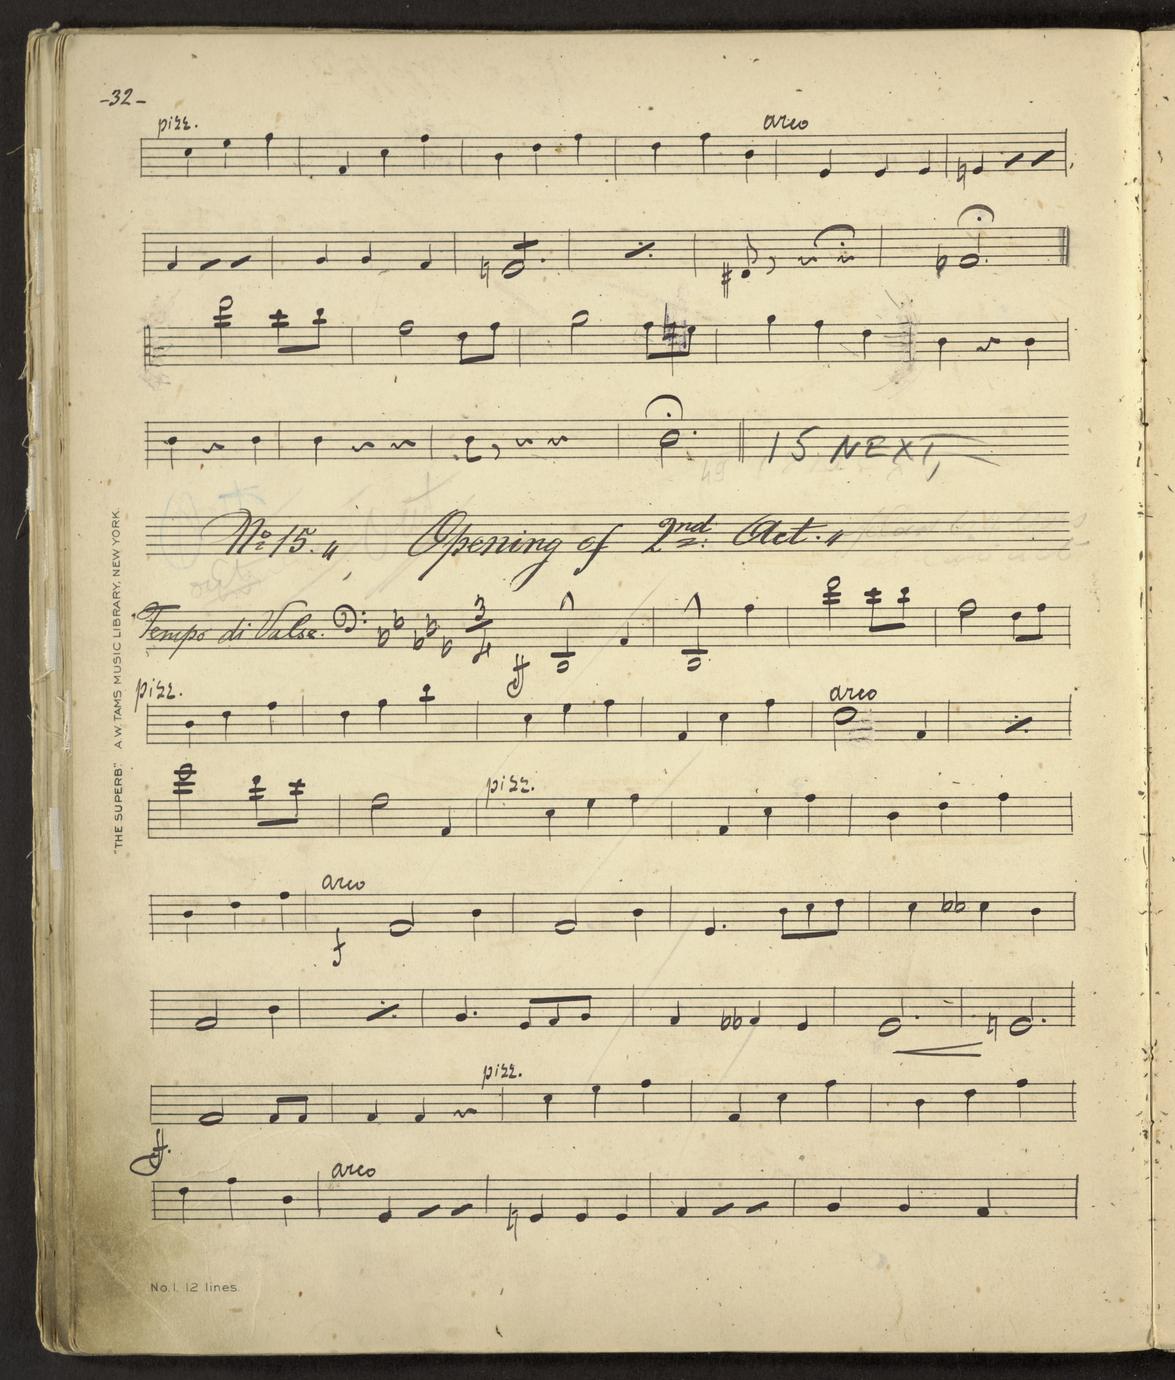 -32-
pizz. arco
15 NEXT
No. 15. „ Opening of 2nd. Act. „
Tempo di Valse. 3/4
ff
pizz. arco
pizz.
arco
f
pizz.
ff.
arco
"THE SUPERB" A.W. TAMS MUSIC LIBRARY, NEW YORK.
No. 1. 12 lines.